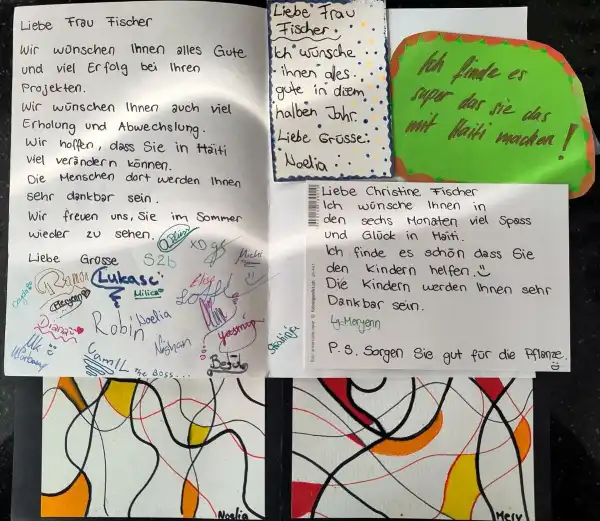 Liebe Frau Fischer
Wir wünschen Ihnen alles Gute
und viel Erfolg bei Ihren
Projekten.
Wir wünschen Ihnen auch viel
Erholung und Abwechslung.
Wir hoffen, dass Sie in Haiti
viel verändern können.
Die Menschen dort werden Ihnen
sehr dankbar sein.
Wir freuen uns, Sie im Sommer
wieder zu sehen.
Liebe Grüsse S2b
Ramon
Lukas
Benjamin
Milica
Diana
Robin
Noelia
Nishan
Yasmin
Camil the Boss...
Begüm
Liebe Frau
Fischer.
Ich wünsche
ihnen alles
gute in disem
halben Jahr.
Liebe Grüsse.
Noelia
Ich finde es
super das sie das
mit Haiti machen!
Liebe Christine Fischer
Ich wünsche Ihnen in
den sechs Monaten viel Spass
und Glück in Haiti.
Ich finde es schön dass Sie
den Kindern helfen.
Die Kindern werden Ihnen sehr
Dankbar sein.
Lg. Meryem
P.S. Sorgen Sie gut für die Pflanze.
Noelia
Mery